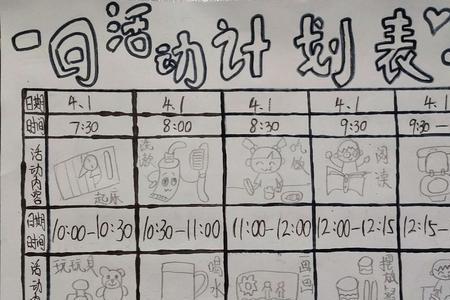 一日活动计划表
日期 4.1 4.1 4.1 4.1 4.1
时间 7:30 8:00 8:30 9:30 9:30—
活动内容 起床 洗漱 吃饭 阅读
日期
时间 10:00-10:30 10:30-11:00 11:00-12:00 12:00-12:15 12:15-
活动 玩玩具 喝水 画画